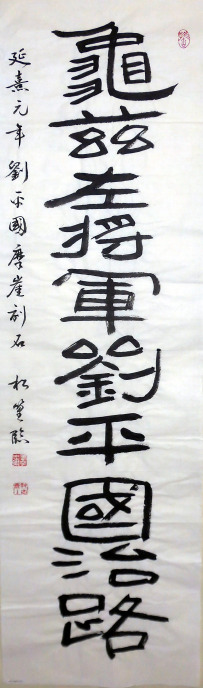 龜茲左將軍劉平國治路
延熹元年劉平國摩崖刻石 松篁臨